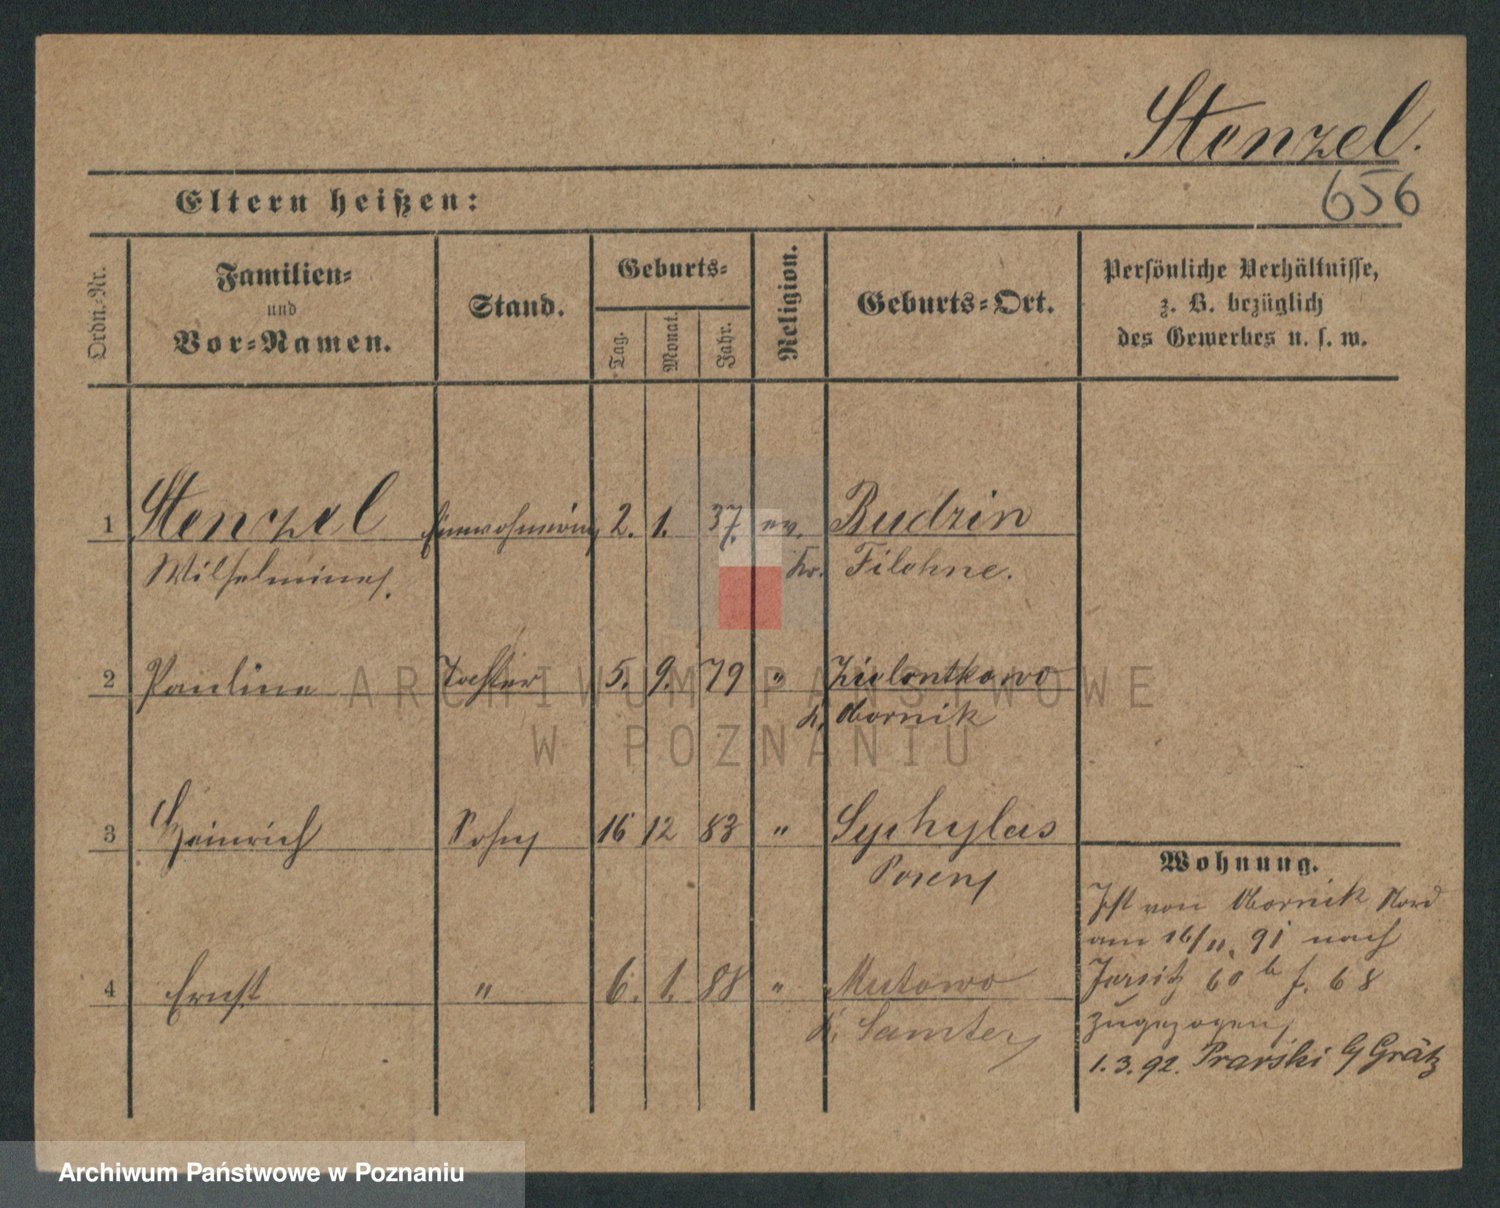 Stenzel.
656
Eltern heißen:
Ordn.-Nr.
Familien-
und
Vor-Namen.
Stand.
Geburts-
Tag.
Monat.
Jahr.
Religion.
Geburts-Ort.
Persönliche Verhältnisse,
z. B. bezüglich
des Gewerbes u. s. w.
1 Stenzel Einwohnerin 2. 1. 37. ev. Budzin
Wilhelmine. Kr. Filehne.
2 Pauline Tochter 5. 9. 79 " Zielontkowo
K. Obornik
3 Heinrich Sohn 16 12 83 "
Posen
4 Ernst " 6. 1. 88 " Mutowo
K. Samter
Wohnung.
Ist von Obornik Nord
am 16/11. 91 nach
Jersitz 60 b f. 68
zugezogen
1. 3. 92. Prarski G Grätz
ARCHIWUM PAŃSTWOWE
W POZNANIU
Archiwum Państwowe w Poznaniu